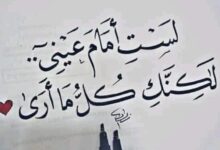 لَسْتِ أَمَامَ عَيْنِي ..
لَكِنَّكِ كُلُّ مَا أَرَىٰ